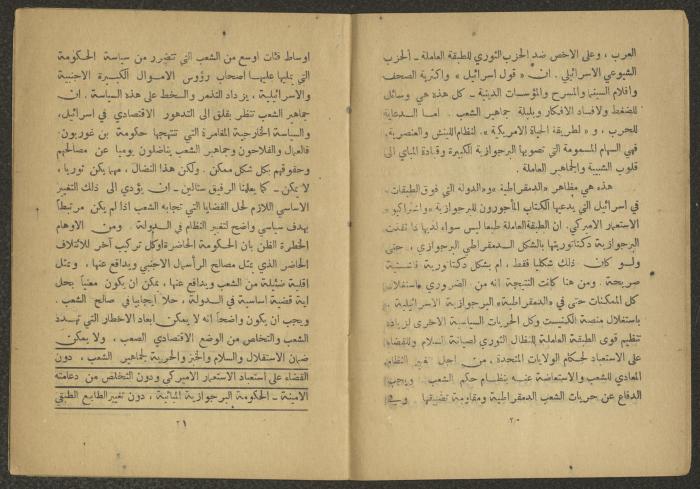 العرب ، وعلى الاخص ضد الحزب الثوري للطبقة العاملة - الحزب
الشيوعي الاسرائيلي . ان « قول اسرائيل » واكثرية الصحف
وافلام السينما والمسرح والمؤسسات الدينية - كل هذه هي وسائل
للضغط ولافساد الافكار وبلبلة جماهير الشعب . اما الدعاية
للحرب ، و « لطريقة الحياة الامريكية » ، لنظام اللينش والعنصرية،
فهي السهام المسمومة التي تصوبها البرجوازية الكبيرة وقيادة المباي الى
قلوب الشبيبة والجماهير العاملة .
هذه هي مظاهر «الدمقراطية» و«الدولة التي فوق الطبقات»
في اسرائيل التي يدعيها الكتاب المأجورون للبرجوازية «واشتراكيو»
الاستعمار الاميركي . ان الطبقة العاملة طبعا ليس سواء لديها اذا نفذت
البرجوازية دكتاتوريتها بالشكل الدمقراطي البرجوازي ، حتى
ولو كان ذلك شكليا فقط ، ام بشكل دكتاتورية فاشستية
صريحة . ومن هنا كانت النتيجة انه من الضروري استغلال
كل الممكنات حتى في «الدمقراطية» البرجوازية الاسرائيلية -
باستغلال منصة الكنيست وكل الحريات السياسية الاخرى لزيادة
تنظيم قوى الطبقة العاملة للنضال الثوري لصيانة السلام وللقضاء
على الاستعباد لحكام الولايات المتحدة ، من اجل تغيير النظام
المعادي للشعب والاستعاضة عنه بنظام حكم الشعب . ويجب
الدفاع عن حريات الشعب الدمقراطية ومقاومة تضييقها . وفي
٢٠
اوساط فئات اوسع من الشعب التي تتضرر من سياسة الحكومة
التي يمليها عليها اصحاب رؤوس الاموال الكبيرة الاجنبية
والاسرائيلية ، يزداد التذمر والسخط على هذه السياسة . ان
جماهير الشعب تنظر بقلق الى التدهور الاقتصادي في اسرائيل،
والسياسة الخارجية المغامرة التي تنتهجها حكومة بن غوريون.
فالعمال والفلاحون وجماهير الشعب يناضلون يوميا عن مصالحهم
وحقوقهم بكل شكل ممكن . ولكن هذا النضال ، مهما يكن ثوريا ،
لا يمكن - كما يعلمنا الرفيق ستالين - ان يؤدي الى ذلك التغيير
الاساسي اللازم لحل القضايا التي تجابه الشعب اذا لم يكن مرتبطاً
بهدف سياسي واضح لتغيير النظام في الدولة . ومن الاوهام
الخطرة الظن بان الحكومة الحاضرة او كل تركيب آخر للائتلاف
الحاضر الذي يمثل مصالح الرأسمال الاجنبي ويدافع عنها ، ويمثل
اقلية ضئيلة من الشعب ويدافع عنها ، يمكن ان يكون معنياً بحل
اية قضية اساسية في الدولة ، حلاً ايجابياً في صالح الشعب .
ويجب ان يكون واضحاً انه لا يمكن ابعاد الاخطار التي تهدد
الشعب والتخلص من الوضع الاقتصادي الصعب ، ولا يمكن
ضمان الاستقلال والسلام والخبز والحرية لجماهير الشعب ، دون
القضاء على استعباد الاستعمار الاميركي ودون التخلص من دعامته
الامينة - الحكومة البرجوازية المبائية ، دون تغيير الطابع الطبقي
٢١